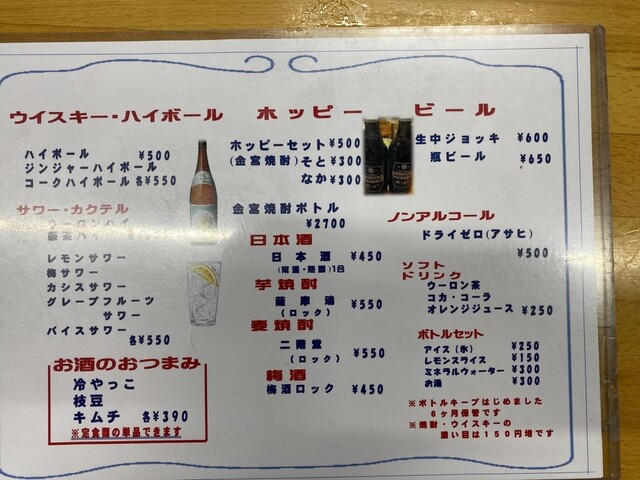 ウイスキー・ハイボール
ハイボール ¥500
ジンジャーハイボール
コークハイボール 各¥550
サワー・カクテル
レモンサワー
梅サワー
カシスサワー
グレープフルーツ
サワー
バイスサワー
各¥550
お酒のおつまみ
冷やっこ
枝豆
キムチ 各¥390
※定食類の単品できます
ホッピー
ホッピーセット ¥500
(金宮焼酎) そと ¥300
なか ¥300
金宮焼酎ボトル
¥2700
日本酒
日本酒 ¥450
(常温・熱燗)1合
芋焼酎
¥550
(ロック)
麦焼酎
二階堂
(ロック) ¥550
梅酒
梅酒ロック ¥450
ビール
生中ジョッキ ¥600
瓶ビール ¥650
ノンアルコール
ドライゼロ(アサヒ)
¥500
ソフト
ドリンク
ウーロン茶
コカ・コーラ
オレンジジュース ¥250
ボトルセット
アイス(氷) ¥250
レモンスライス ¥150
ミネラルウォーター ¥300
お湯 ¥300
※ボトルキープはじめました
6ヶ月保管です
※焼酎・ウイスキーの
濃い目は150円増です